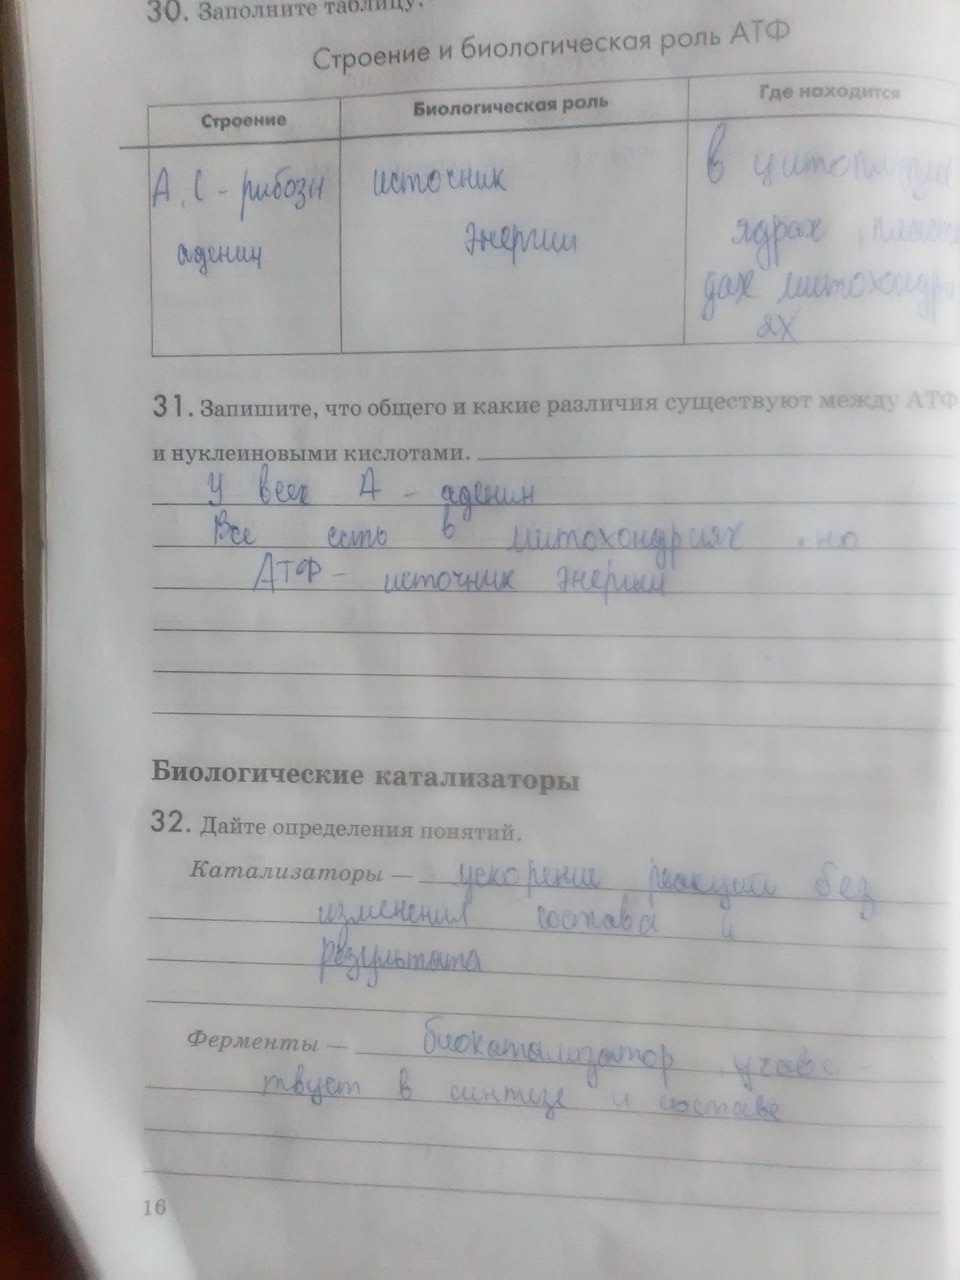 30. Заполните таблицу.
Строение и биологическая роль АТФ
Строение Биологическая роль Где находится
А, С - рибозы источник в
аденин энергии ядрах,
дах митохондри
ях
31. Запишите, что общего и какие различия существуют между АТФ
и нуклеиновыми кислотами.
У всех А - аденин
Все есть в митохондриях, но
АТФ - источник энергии
Биологические катализаторы
32. Дайте определения понятий.
Катализаторы — ускорение реакции без
изменения состава и
результата
Ферменты — биокатализатор, участ-
твует в синтезе и составе
16